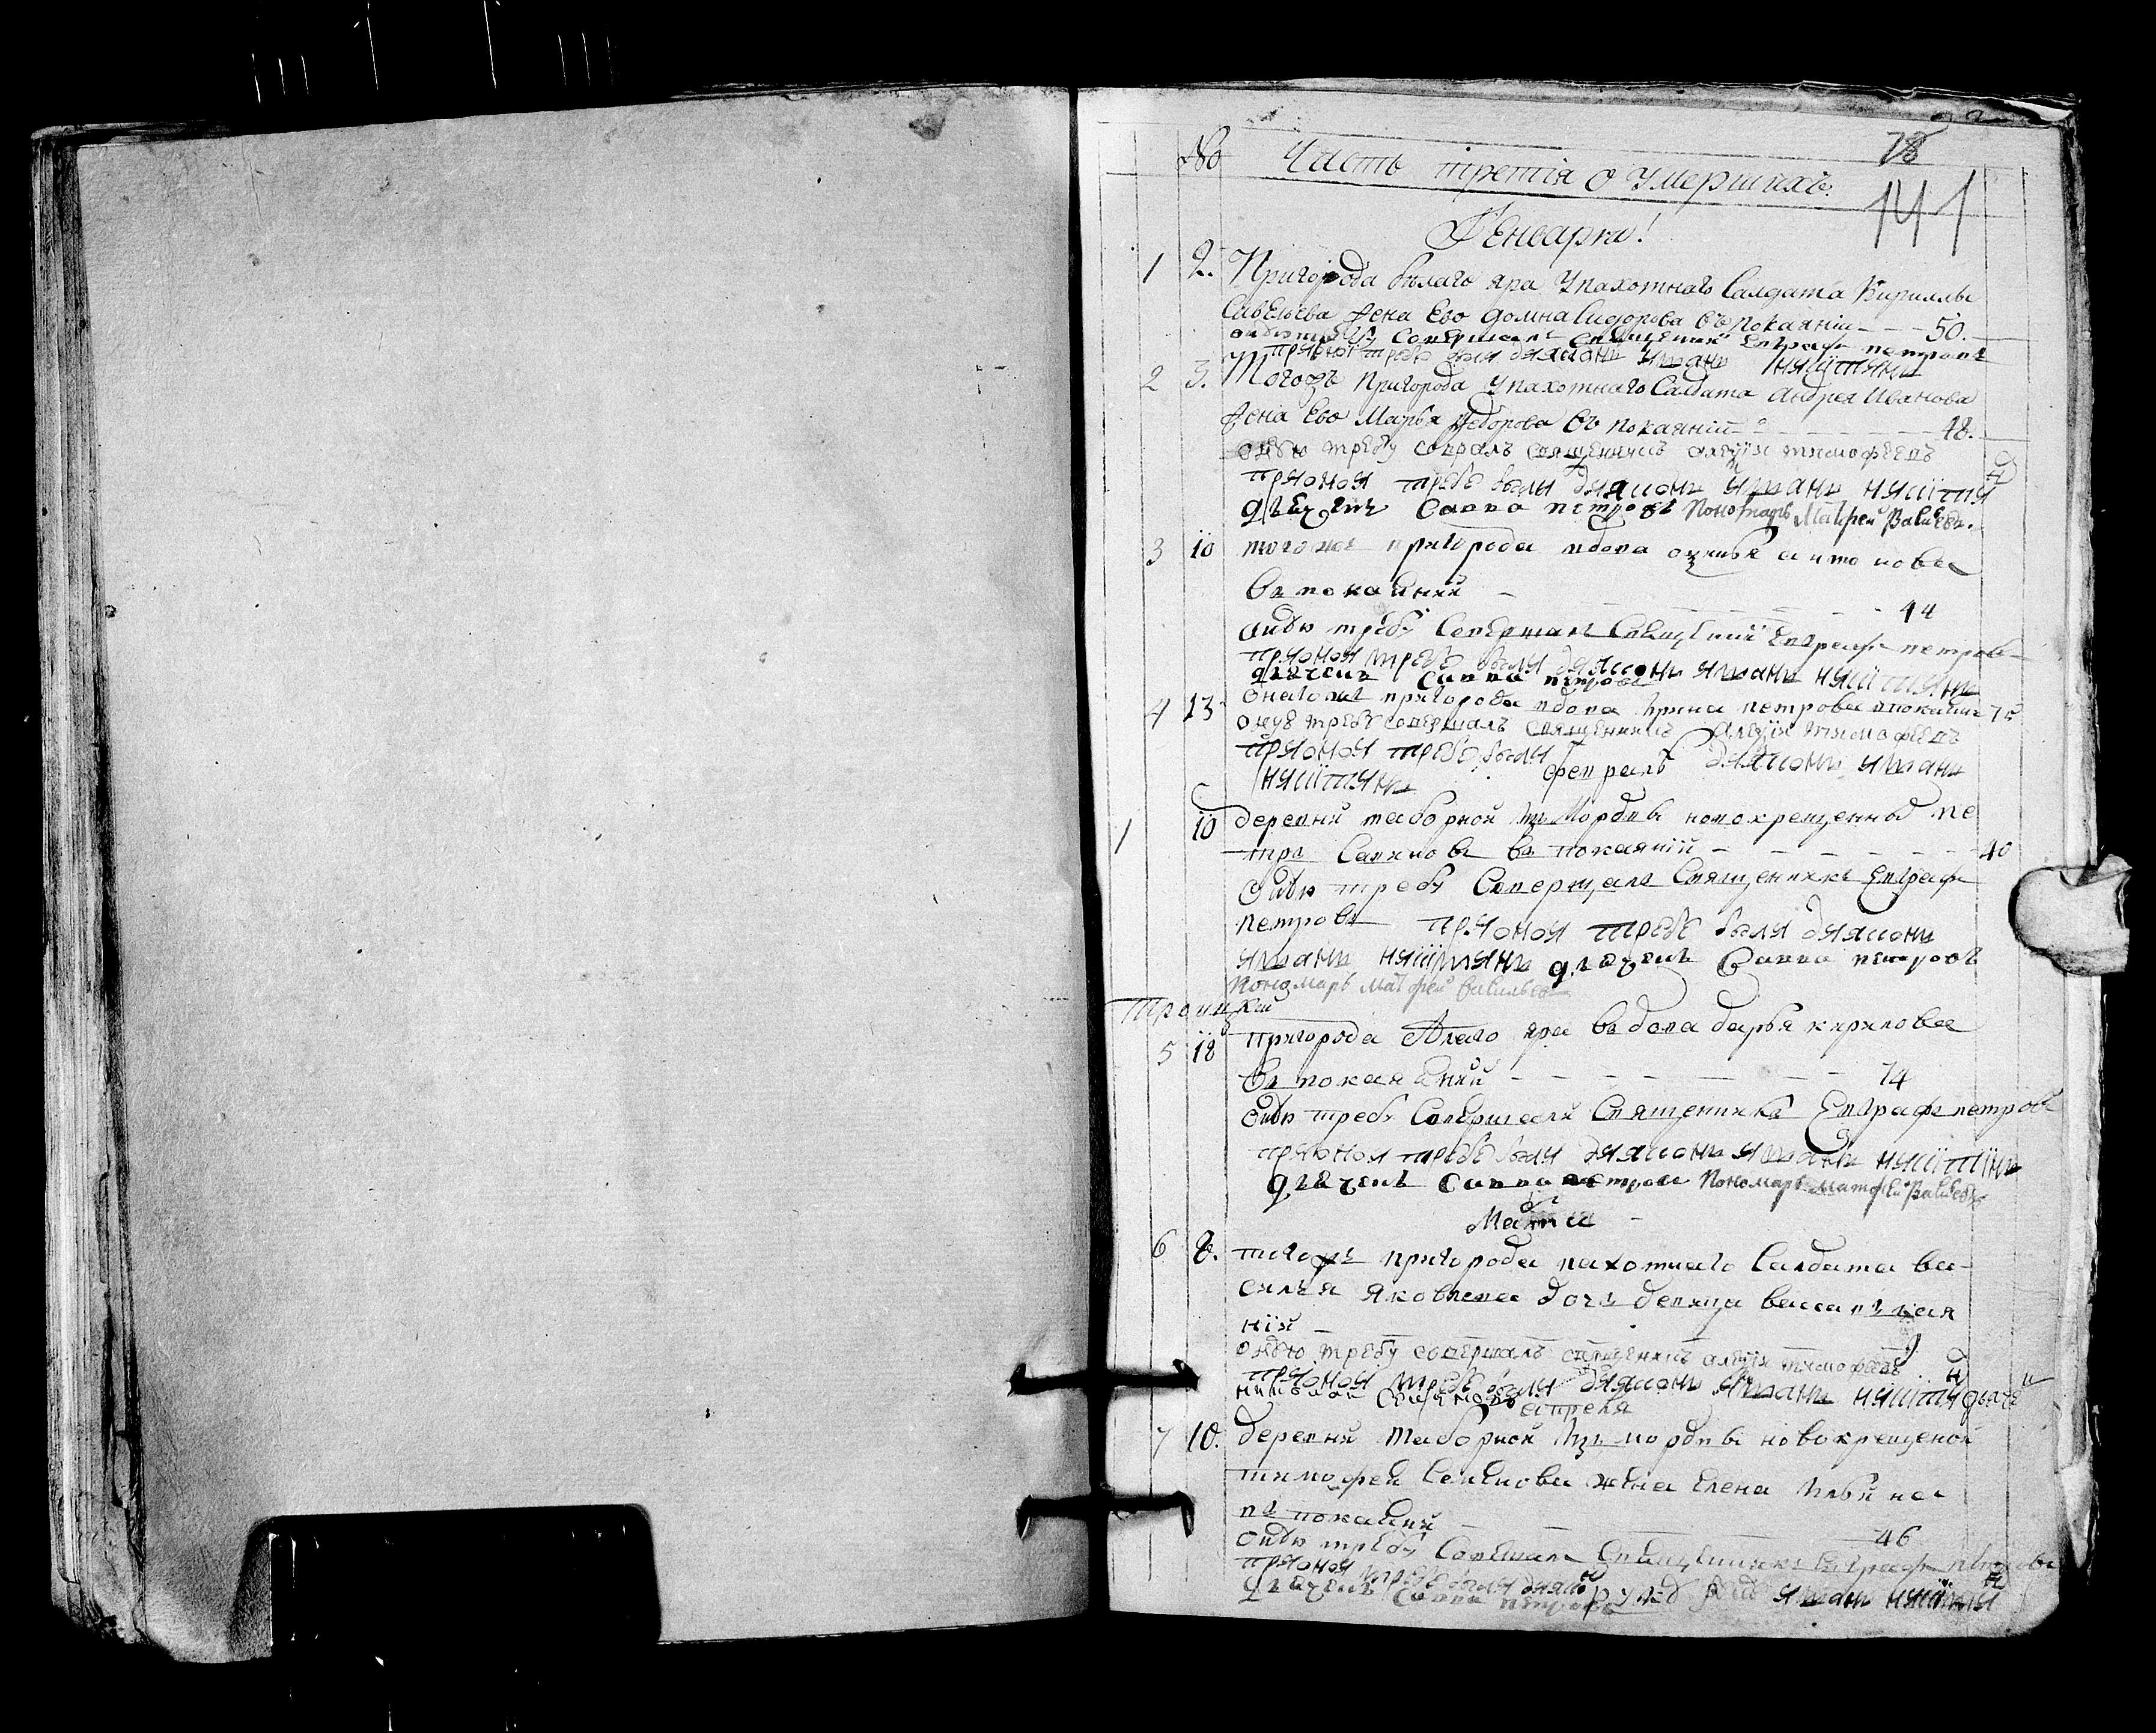 78
No Часть третїя о умершихъ.
141
Генваря!
1 2. Пригорода белаго яра у пахотнаго Салдата Кирилы
Савельева жена Ево Домна Сидорова въ покаянїи - - - 50.
онию требу Совершалъ Священникъ Евграфъ петровъ
при оной требе были дияконъ иванъ никитинъ
2 3. Тогожъ пригорода у пахотнаго Салдата Андрея Иванова
жена Ево Марья Федорова въ покаянїи - - - 48.
онѣю требу соврал священникъ алеѯїи тимофеевъ
при оной требе были дияконъ иванъ никити
дьячекъ Савва петровъ Пономарь Матфей Васильевъ.
3 10 тогожъ пригорода вдова
въ покаянии - - - 44
онию требу Совершалъ Священникъ Евграфъ петровъ
при оной требе были дияконъ иванъ никитинъ
дьячекъ Савва петровъ
4 13 оногожъ пригорода вдова Ирина петрова впокаянии 75
онуе требу совершалъ священникъ Алеѯїи тимофеевъ
при оной требе были дияконъ иванъ
никитинъ февраль
1 10 деревни таборной из Мордвы новокрещенной пе
тръ въ покаянїй - - - 40
онию требу Совершалъ Священникъ Евграфъ
петровъ при оной требе были дияконъ
иванъ никитинъ дьячекъ Савва петровъ
Пономарь Матфей Васильевъ
Троицкий
5 18 пригорода Белаго яра вдова дарья кирилова
въ покаянии - - - 74
онию требу Совершали Священникъ Евграфъ петровъ
при оной требе были дияконъ иванъ никитинъ
дьячекъ Савва петровъ Пономарь матфей Васильевъ
Марта
6 8. тогожъ пригорода пахотнаго Салдата ва-
силья яковлева дочь девица васса въ покая
нїи -
онѣю требу совершалъ священникъ алеѯїи тимофеевъ
при оной требе были дияконъ иванъ никитин дьяче
николай апреля
7 10. деревни таборной Изъ мордвы новокрещеной
тимофей Семенова жена Елена Ильина
въ покаянии - - - 46
онию требу Совершалъ Священникъ Евграфъ петровъ
при оной требе были дияко иванъ никитин
дьячекъ Савва петровъ